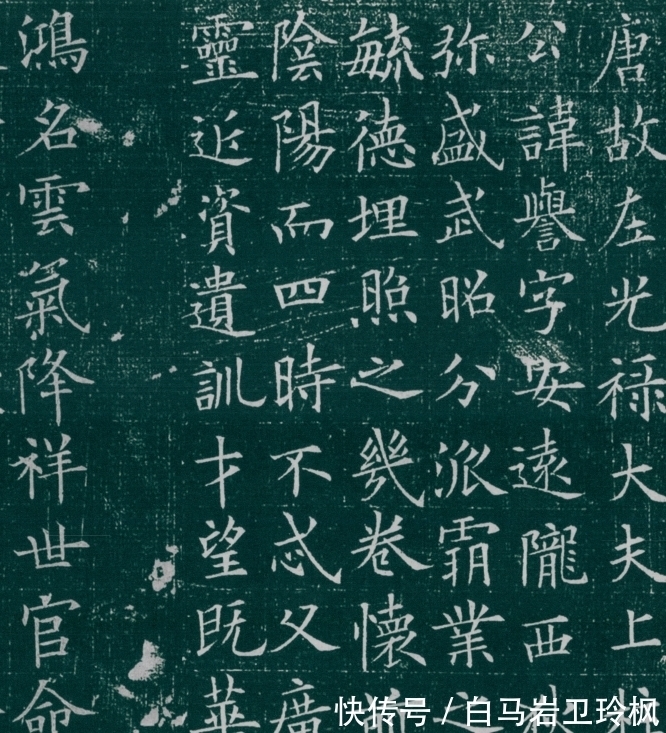 唐故左光禄大夫上柱
公諱譽字安遠隴西
弥盛武昭分派霸業之
毓德埋照之幾卷懷
陰陽而四時不忒乂廣
靈近資遺訓才望既華
鴻名雲氣降祥世官命
快传号 / 白马岩卫玲枫